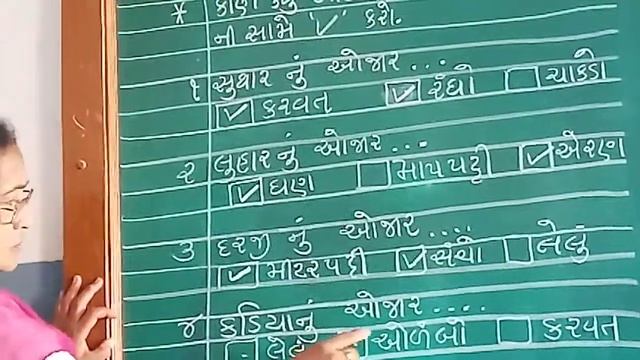 * કોણ કયુ
ની સામે '✓' કરો.
૧ સુથાર નું ઓજાર ...
☑ કરવત ☑ રંધો ☐ ચાકડો
૨ લુહારનું ઓજાર ...
☑ ઘણ ☐ માપપટ્ટી ☑ એરણ
૩ દરજી નું ઓજાર ....
☑ મીટરપટ્ટી ☑ સંચો ☐ લેલું
૪ કડિયાનું ઓજાર ....
ઓળંબો ☐ કરવત